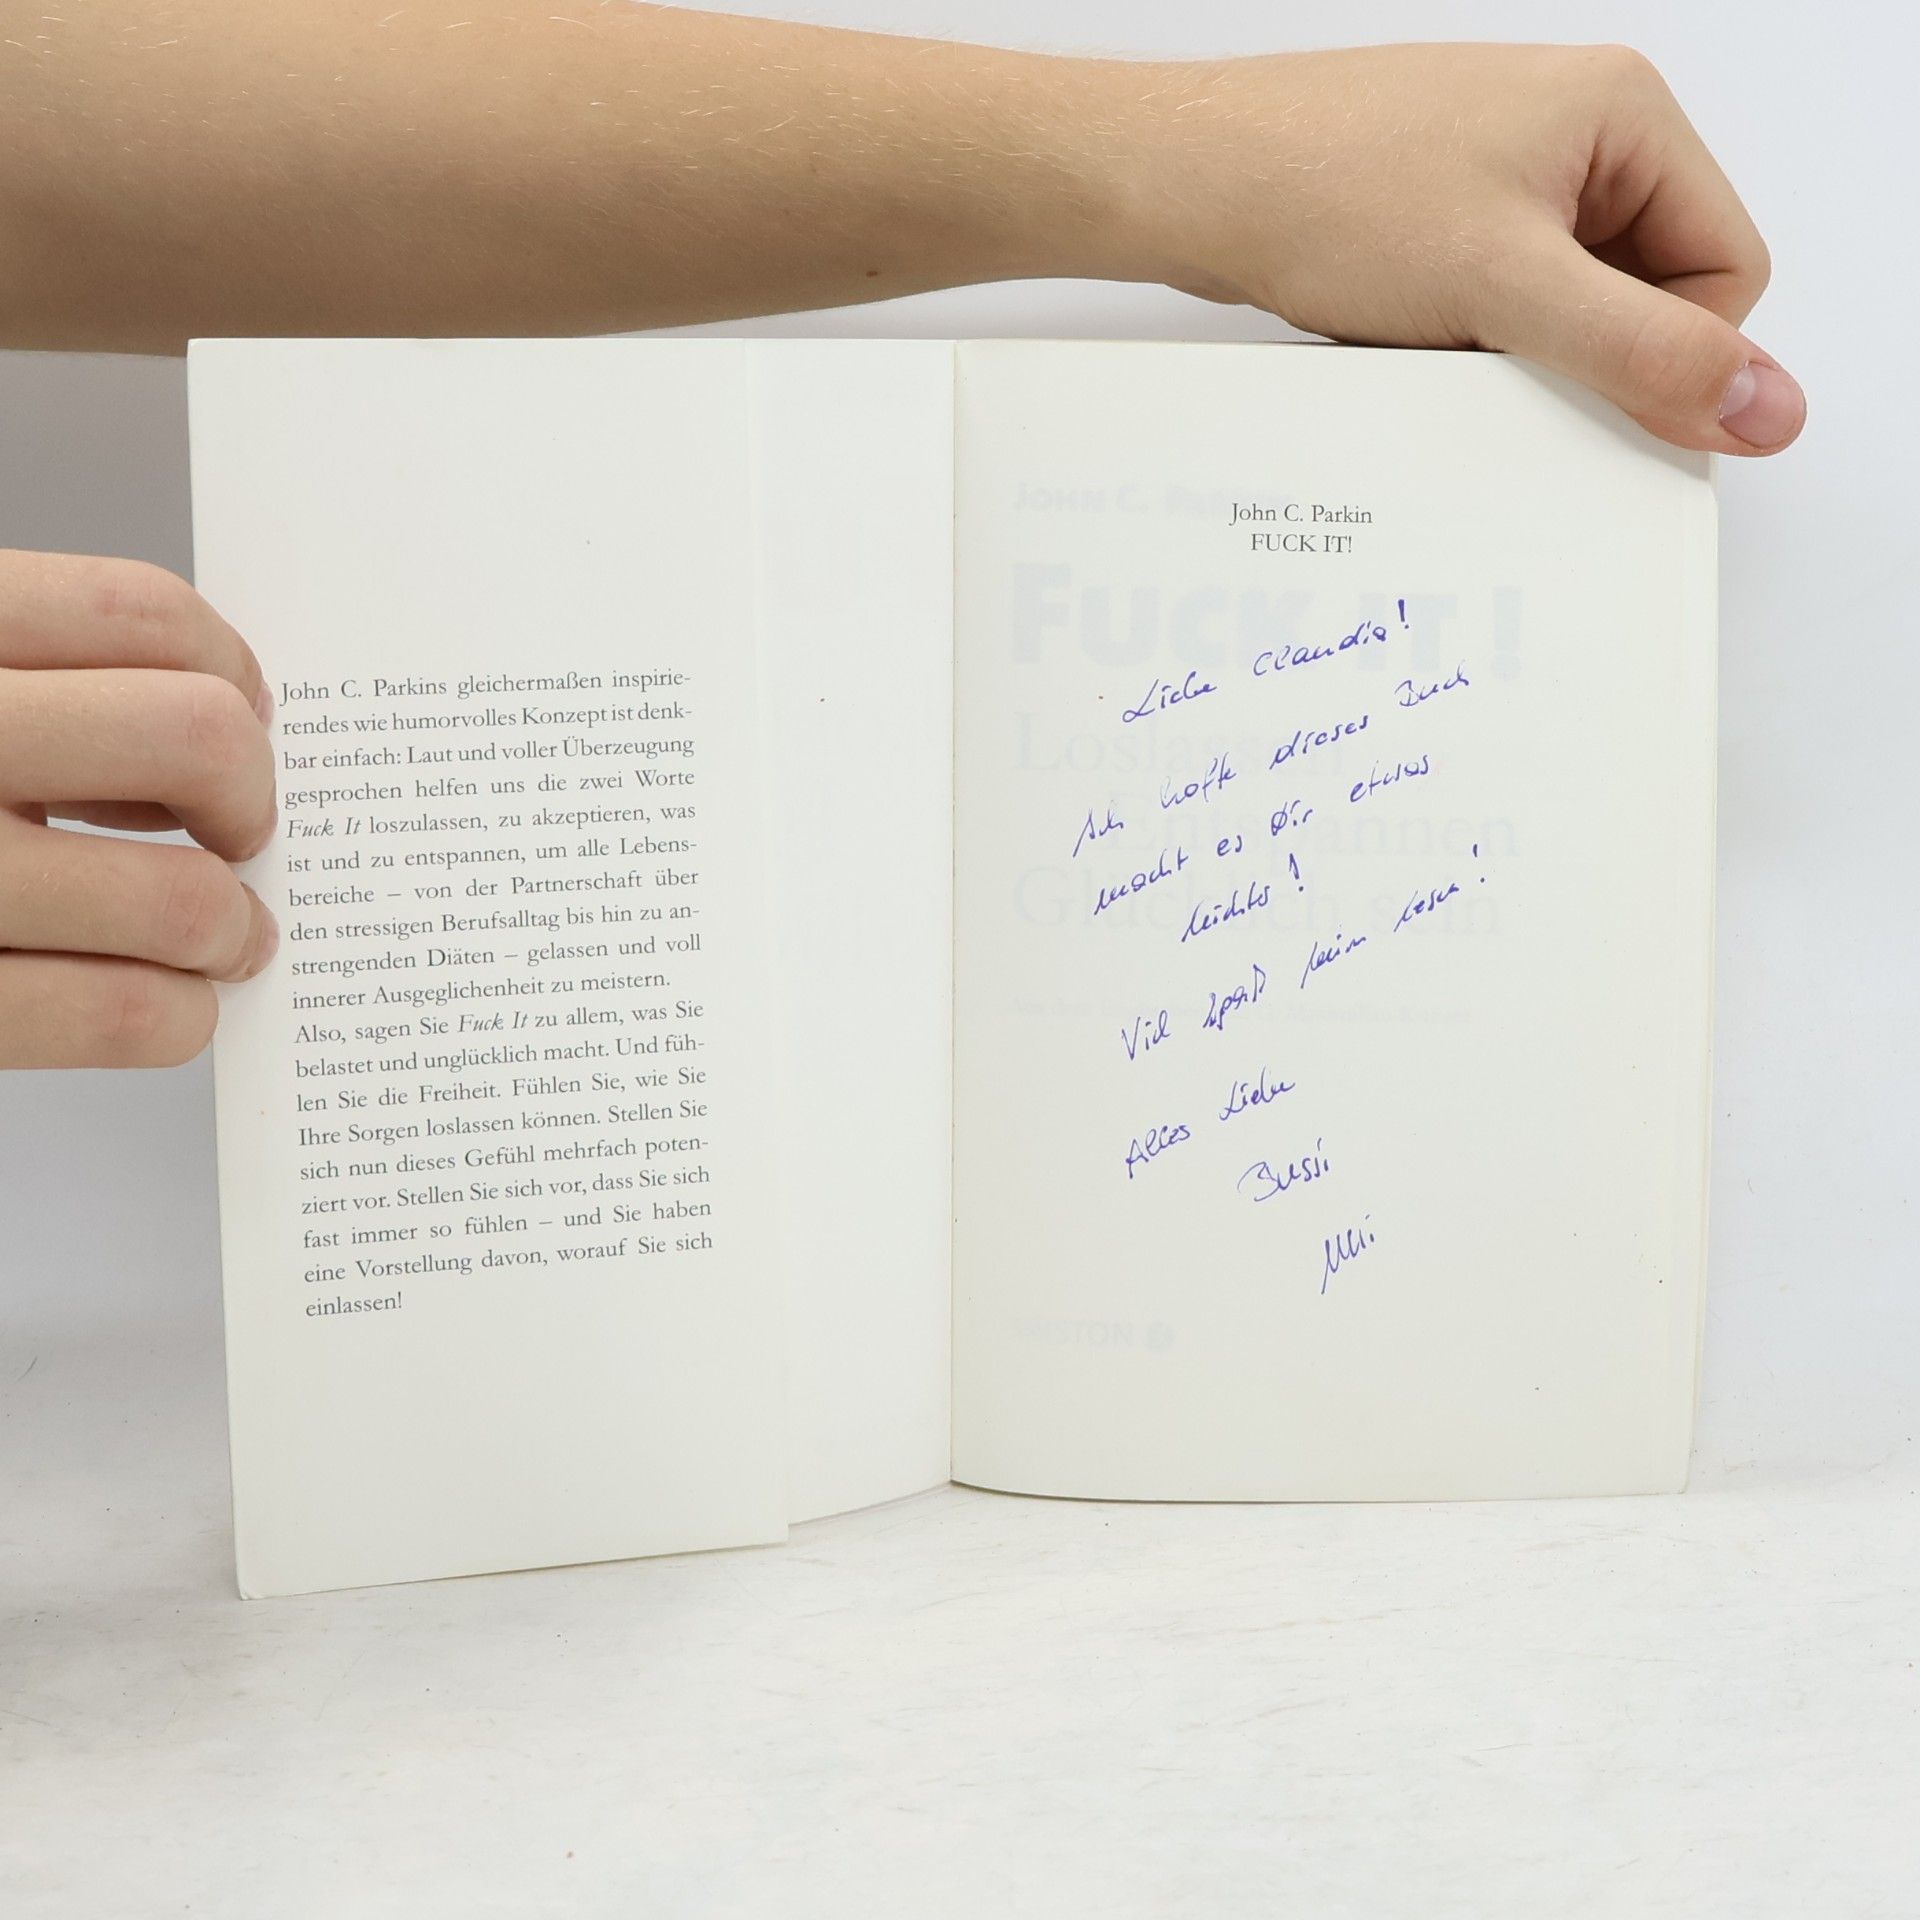 John C. Parkins gleichermaßen inspirie-
rendes wie humorvolles Konzept ist denk-
bar einfach: Laut und voller Überzeugung
gesprochen helfen uns die zwei Worte
Fuck It loszulassen, zu akzeptieren, was
ist und zu entspannen, um alle Lebens-
bereiche – von der Partnerschaft über
den stressigen Berufsalltag bis hin zu an-
strengenden Diäten – gelassen und voll
innerer Ausgeglichenheit zu meistern.
Also, sagen Sie Fuck It zu allem, was Sie
belastet und unglücklich macht. Und füh-
len Sie die Freiheit. Fühlen Sie, wie Sie
Ihre Sorgen loslassen können. Stellen Sie
sich nun dieses Gefühl mehrfach poten-
ziert vor. Stellen Sie sich vor, dass Sie sich
fast immer so fühlen – und Sie haben
eine Vorstellung davon, worauf Sie sich
einlassen!
John C. Parkin
FUCK IT!
Liebe Claudia!
Ich hoffe dieses Buch
macht es Dir etwas
leichter!
Viel Spaß beim lesen!
Alles Liebe
Bussi
JOHN C.
FUCK IT!
Loslassen
Entspannen
Glücklich sein